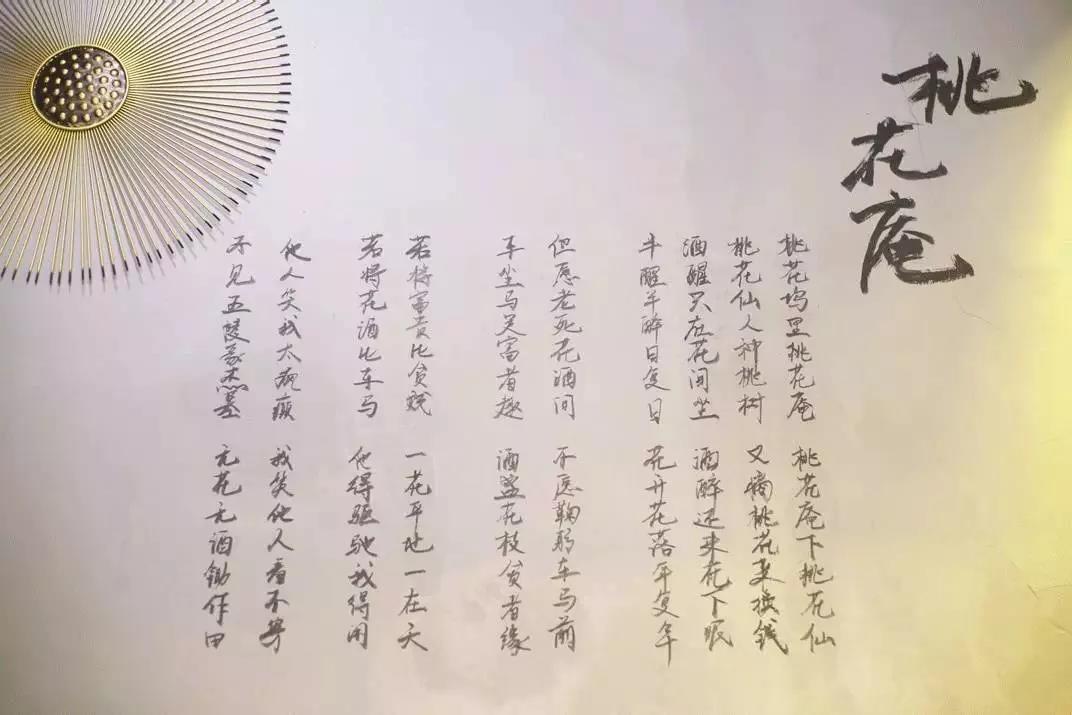 桃花庵
桃花坞里桃花庵 桃花庵下桃花仙
桃花仙人种桃树 又摘桃花换钱
酒醒只在花间坐 酒醉还来花下眠
半醒半醉日复日 花开花落年复年
但愿老死花酒间 不愿鞠躬车马前
车尘马足富者趣 酒盏花枝贫者缘
若将富贵比贫贱 一在平地一在天
若将花酒比车马 他得驱驰我得闲
他人笑我太疯癫 我笑他人看不穿
不见五陵豪杰墓 无花无酒锄作田